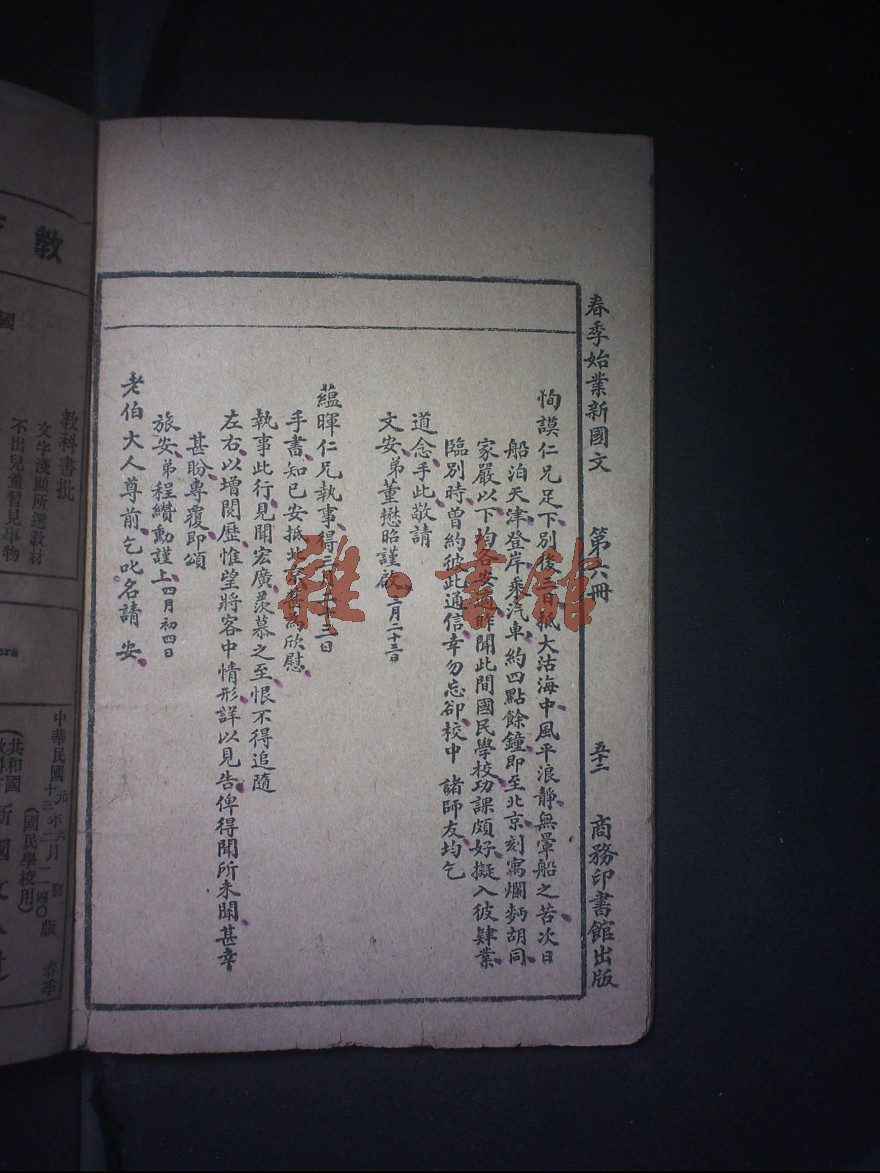 春季始業新國文 第六冊 五十二 商務印書館出版
恂謨仁兄足下別後三日抵大沽海中風平浪靜無暈船之苦次日
船泊天津登岸乘汽車約四點餘鐘即至北京刻寓爛麪胡同
家嚴以下均各安適昨聞此間國民學校功課頗好擬入彼肄業
臨別時曾約彼此通信幸勿忘卻校中諸師友均乞
道念手此敬請
文安弟董懋昭謹啟三月二十三日
蘊暉仁兄執事得三月二十三日
手書知已安抵北京甚為欣慰
執事此行見聞宏廣羨慕之至恨不得追隨
左右以增閱歷惟望將客中情形詳以見告俾得聞所未聞甚幸
甚盼專覆即頌
旅安弟程纘勳謹上四月初四日
老伯大人尊前乞叱名請安。
雜·書館
教
國
教科書批
文字淺顯所選教材
不出兒童習見事物
中華民國
元年六月初
十三年二月一一四〇版
春季
(國民學校用)
共和國
新國文